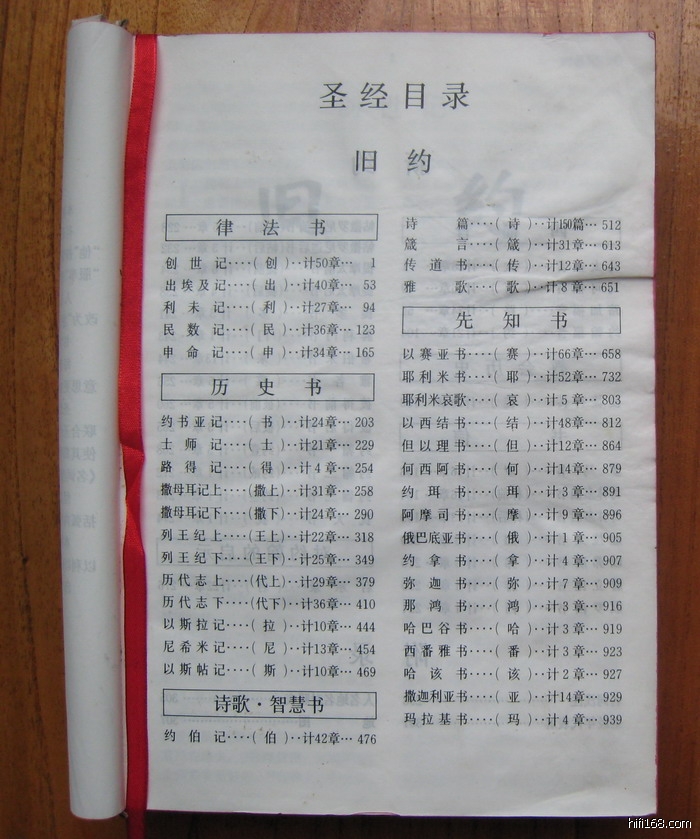 圣经目录
旧 约
律 法 书
创世记····(创)··计50章··· 1
出埃及记····(出)··计40章··· 53
利未记····(利)··计27章··· 94
民数记····(民)··计36章··· 123
申命记····(申)··计34章··· 165
历 史 书
约书亚记····(书)··计24章··· 203
士师记····(士)··计21章··· 229
路得记····(得)··计4章··· 254
撒母耳记上····(撒上)··计31章··· 258
撒母耳记下····(撒下)··计24章··· 290
列王纪上····(王上)··计22章··· 318
列王纪下····(王下)··计25章··· 349
历代志上····(代上)··计29章··· 379
历代志下····(代下)··计36章··· 410
以斯拉记····(拉)··计10章··· 444
尼希米记····(尼)··计13章··· 454
以斯帖记····(斯)··计10章··· 469
诗歌·智慧书
约伯记····(伯)··计42章··· 476
诗篇····(诗)··计150篇··· 512
箴言····(箴)··计31章··· 613
传道书····(传)··计12章··· 643
雅歌····(歌)··计8章··· 651
先 知 书
以赛亚书····(赛)··计66章··· 658
耶利米书····(耶)··计52章··· 732
耶利米哀歌····(哀)··计5章··· 803
以西结书····(结)··计48章··· 812
但以理书····(但)··计12章··· 864
何西阿书····(何)··计14章··· 879
约珥书····(珥)··计3章··· 891
阿摩司书····(摩)··计9章··· 896
俄巴底亚书····(俄)··计1章··· 905
约拿书····(拿)··计4章··· 907
弥迦书····(弥)··计7章··· 909
那鸿书····(鸿)··计3章··· 916
哈巴谷书····(哈)··计3章··· 919
西番雅书····(番)··计3章··· 923
哈该书····(该)··计2章··· 927
撒迦利亚书····(亚)··计14章··· 929
玛拉基书····(玛)··计4章··· 939
hifi168.com